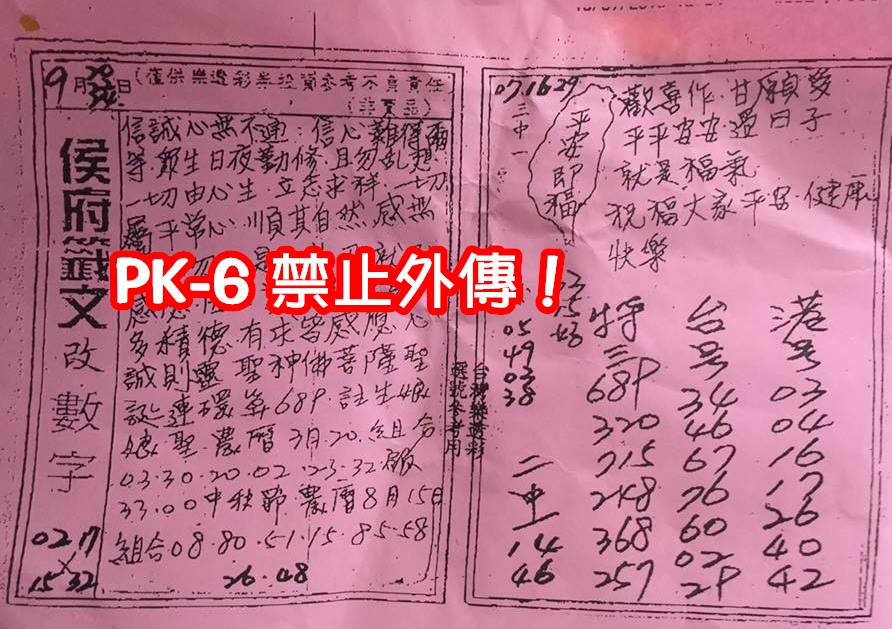 9月 日(僅供樂透彩券投資參考不負責任
(非賣品)
侯府籤文改數字
信誠心無不通:信心難得兩
等.眾生日夜勤修.且勿乱想
一切由心生 立志求祥.一切
平常心 順其自然 感無
PK-6 禁止外傳!
多積德 有求皆感應 心
誠則靈 聖神佛菩薩聖
誕連環 689.註生娘
娘聖農曆3月20.組合
03.30.20.02.23.32
33.00中秋節農曆8月15日
組合08.80.51.15.85.58
26.48
02 17
×
15 32
台灣樂透彩
選號參考用
07.16.29
三中一
平安即福
歡喜作.甘願受
平平安安.過日子
就是福氣
祝福大家平安.健康
快樂
05
49
03
38
二中一
14
46
將三
689
320
715
248
368
257
台号
34
46
67
76
60
02
29
港号
03
04
16
17
26
40
42